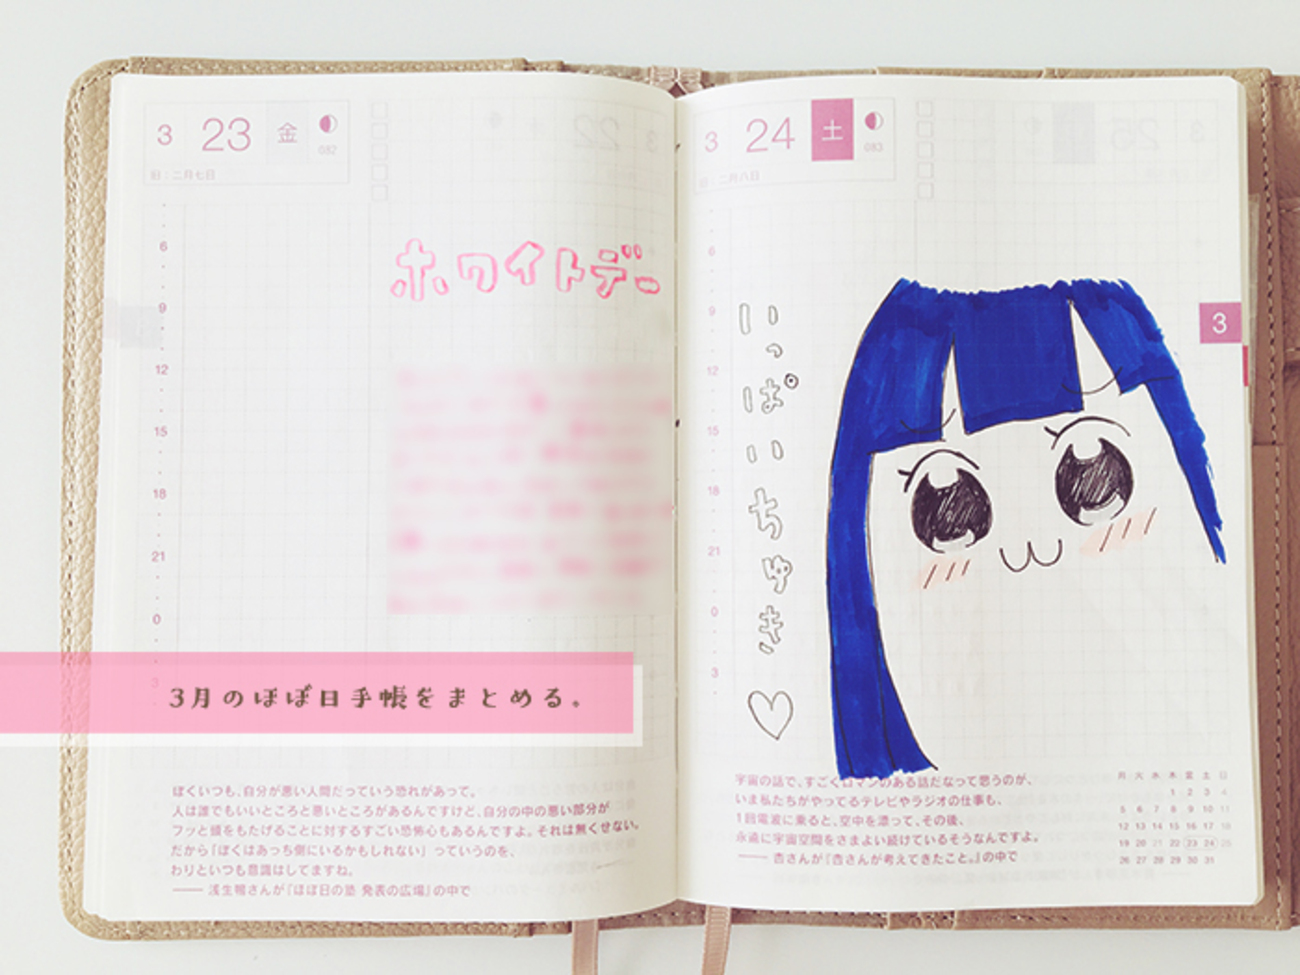 3 23 金
082
旧：二月七日
ホワイトデー
6
9
12
15
18
21
0
3
3月のほぼ日手帳をまとめる。
ぼくいつも、自分が悪い人間だっていう恐れがあって。
人は誰でもいいところと悪いところがあるんですけど、自分の中の悪い部分が
フッと頭をもたげることに対するすごい恐怖心もあるんですよ。それは無くせない。
だから「ぼくはあっち側にいるかもしれない」っていうのを、
わりといつも意識はしてますね。
—— 浅生鴨さんが『ほぼ日の塾 発表の広場』の中で
3 24 土
083
旧：二月八日
6
9
12
15
18
21
0
3
いっぱいちゅき♡
3
宇宙の話で、すごくロマンのある話だなって思うのが、
いま私たちがやってるテレビやラジオの仕事も、
1回電波に乗ると、空中を漂って、その後、
永遠に宇宙空間をさまよい続けているそうなんですよ。
—— 杏さんが『杏さんが考えてきたこと。』の中で
月 火 水 木 金 土 日
1 2 3 4
5 6 7 8 9 10 11
12 13 14 15 16 17 18
19 20 21 22 23 24 25
26 27 28 29 30 31